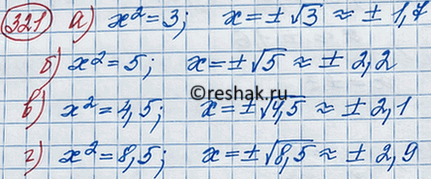 321 а) x² = 3; x = ± √3 ≈ ± 1,7
б) x² = 5; x = ± √5 ≈ ± 2,2
в) x² = 4,5; x = ± √4,5 ≈ ± 2,1
г) x² = 8,5; x = ± √8,5 ≈ ± 2,9